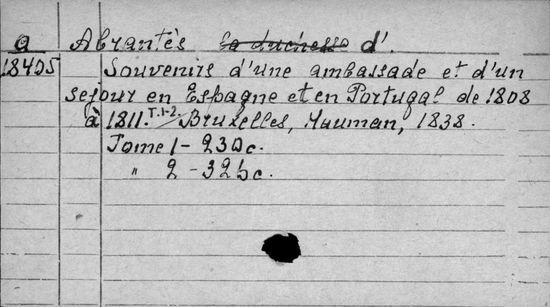 a Abrantès la duchesse d'.
18405 Souvenirs d'une ambassade et d'un
sejour en Espagne et en Portugal de 1808
à 1811. T.1-2. Bruxelles, Hauman, 1838.
Tome 1 - 230 c.
" 2 - 325 c.